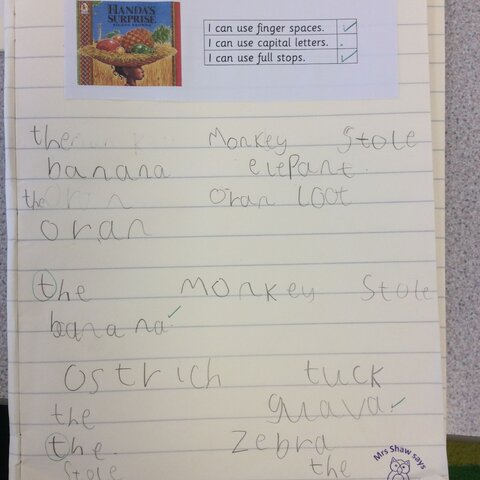 HANDA'S
SURPRISE
EILEEN BROWNE
I can use finger spaces. ✓
I can use capital letters.
I can use full stops. ✓
the Monkey Stole
banana elePant.
the Oran Loot
oran
the monkey Stole
banana. ✓
Ostrich tuck
the guava. ✓
the. Zebra
Stole the
Mrs Shaw says